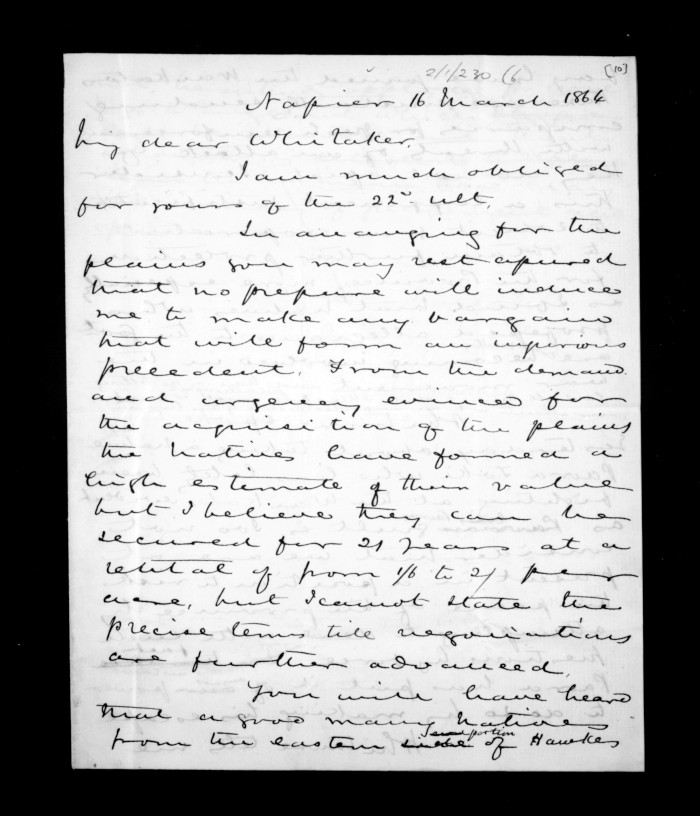 2/1/230 (6
[10]
Napier 16 March 1864
My dear Whitaker,
I am much obliged
for yours of the 22d ult.
In arranging for the
plains you may rest assured
that no pressure will induce
me to make any bargain
that will form an injurious
precedent. From the demand
and urgency evinced for
the acquisition of the plains
the Natives have formed a
high estimate of their value
but I believe they can be
secured for 21 years at a
rental of from 1/6 to 2/ per
acre, but I cannot state the
precise terms till negotiations
are further advanced.
You will have heard
that a good many Natives
portion
from the eastern of Hawkes